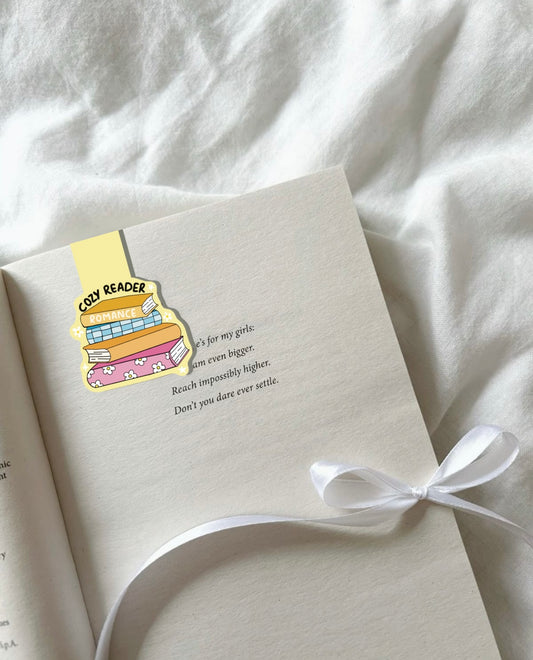 COZY READER
ROMANCE
e's for my girls:
am even bigger.
Reach impossibly higher.
Don't you dare ever settle.
nic
nt
ry
es
S.p.A.